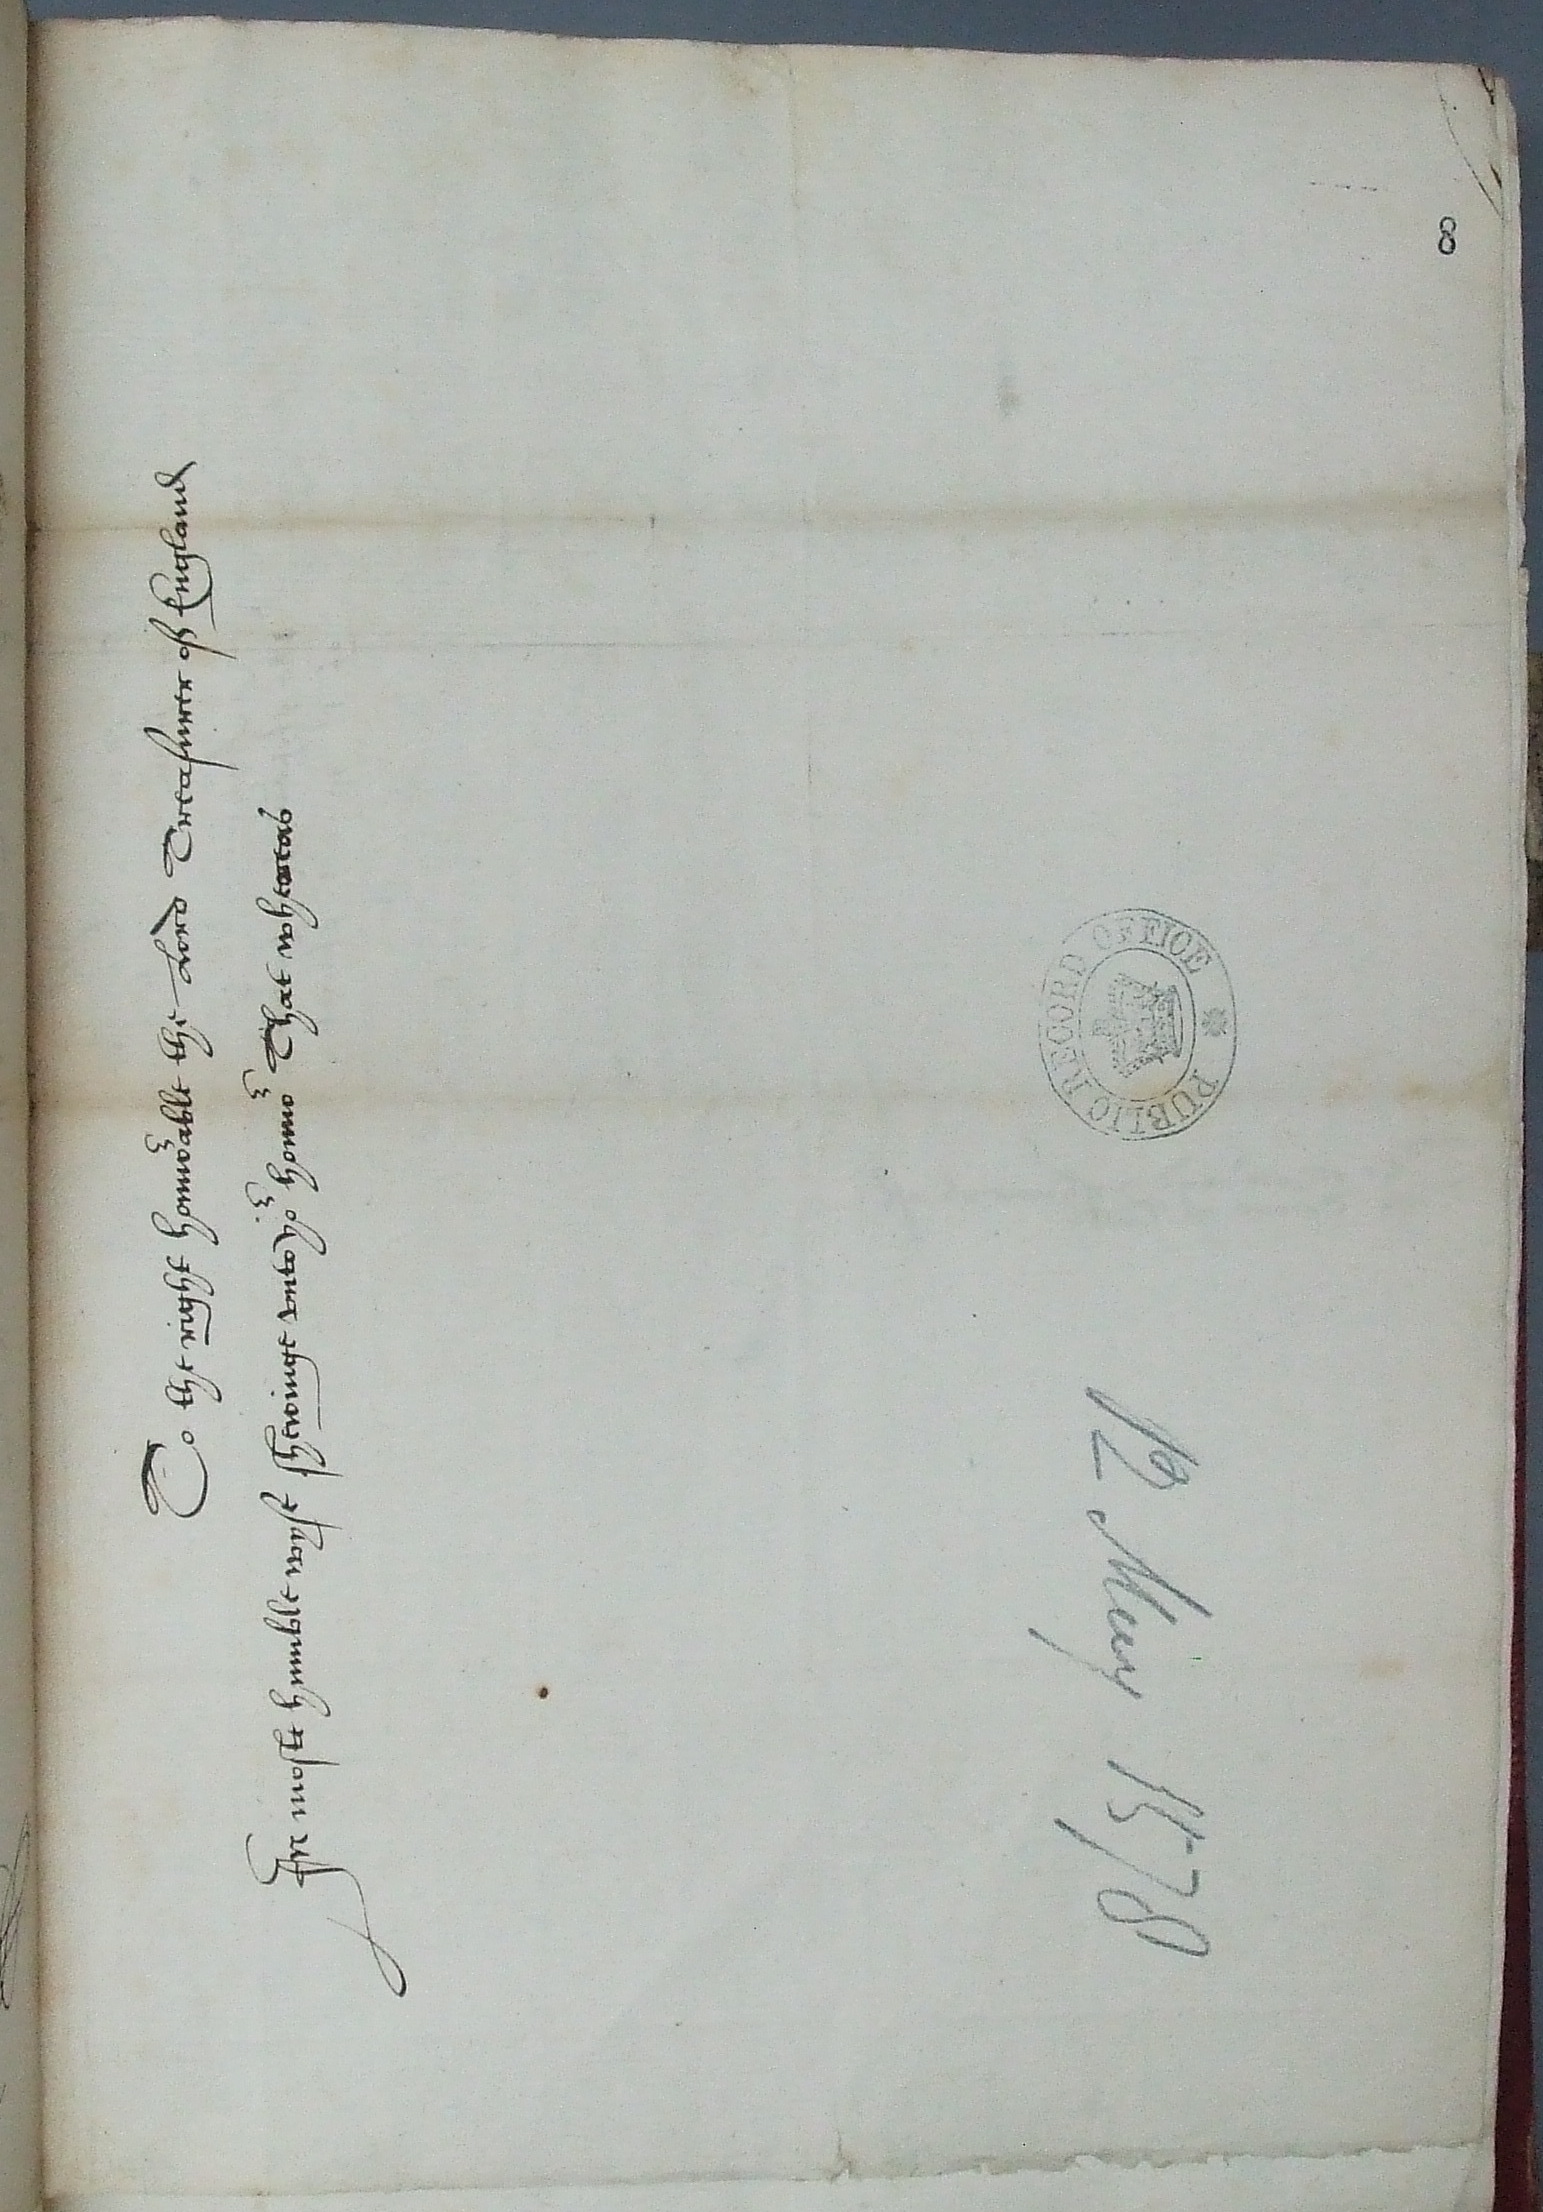 To the right honorable the Lord Treasurer off England
In moste humble wyse shewinge unto yor honnor That wheras
8
PUBLIC RECORD OFFICE
12 May 1578